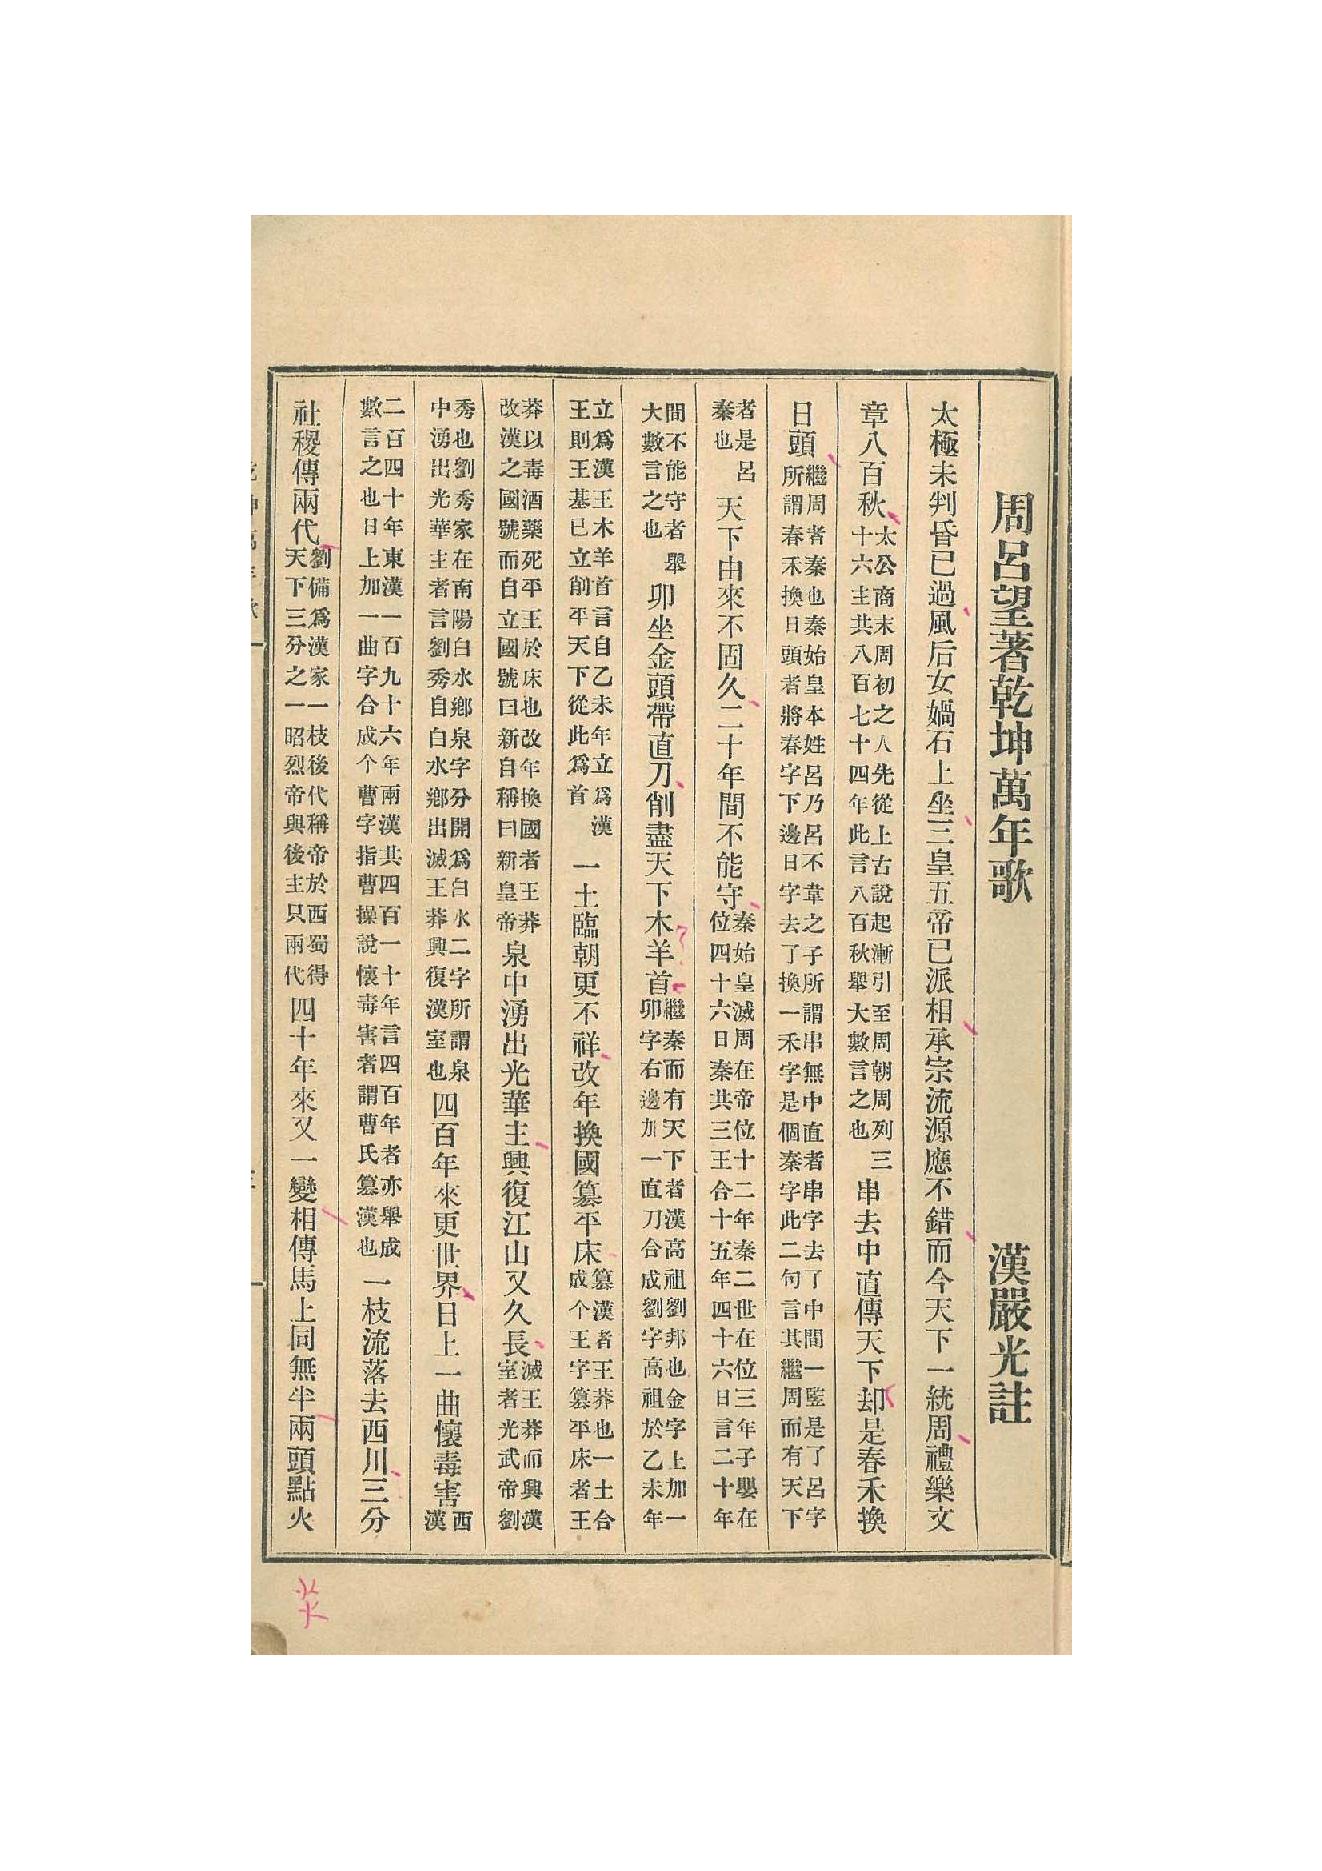 周呂望著乾坤萬年歌 漢嚴光註
太極未判昏已過風后女媧石上坐三皇五帝已派相承宗流源應不錯而今天下一統周禮樂文
章八百秋
太公商末周初之人先從上古說起漸引至周朝周列三
十六主共八百七十四年此言八百秋舉大數言之也
串去中直傳天下却是春禾換
日頭
繼周者秦也秦始皇本姓呂乃呂不韋之子所謂串無中直者串字去了中間一監是了呂字
所謂春禾換日頭者將春字下邊日字去了換一禾字是個秦字此二句言其繼周而有天下
者是呂
秦也
天下由來不固久二十年間不能守
秦始皇滅周在帝位十二年秦二世在位三年子嬰在
位四十六日秦共三王合十五年四十六日言二十年
間不能守者舉
大數言之也
卯坐金頭帶直刀削盡天下木羊首
繼秦而有天下者漢高祖劉邦也金字上加一
卯字右邊加一直刀合成劉字高祖於乙未年
立爲漢王木羊首言自乙未年立爲漢
王則王基已立削平天下從此爲首
一土臨朝更不祥改年換國篡平床
篡漢者王莽也一士合
成个王字篡平床者王
莽以毒酒藥死平王於床也改年換國者王莽
改漢之國號而自立國號曰新自稱曰新皇帝
泉中湧出光華主興復江山又久長
滅王莽而興漢
室者光武帝劉
秀也劉秀家在南陽白水鄉泉字分開爲白水二字所謂泉
中湧出光華主者言劉秀自白水鄉出滅王莽興復漢室也
四百年來更世界日上一曲懷毒害
西
漢
二百四十年東漢一百九十六年兩漢共四百一十年言四百年者亦舉成
數言之也日上加一曲字合成个曹字指曹操說懷毒害者謂曹氏篡漢也
一枝流落去西川三分
社稷傳兩代
劉備爲漢家一枝後代稱帝於西蜀得
天下三分之一昭烈帝與後主只兩代
四十年來又一變相傳馬上同無半兩頭點火